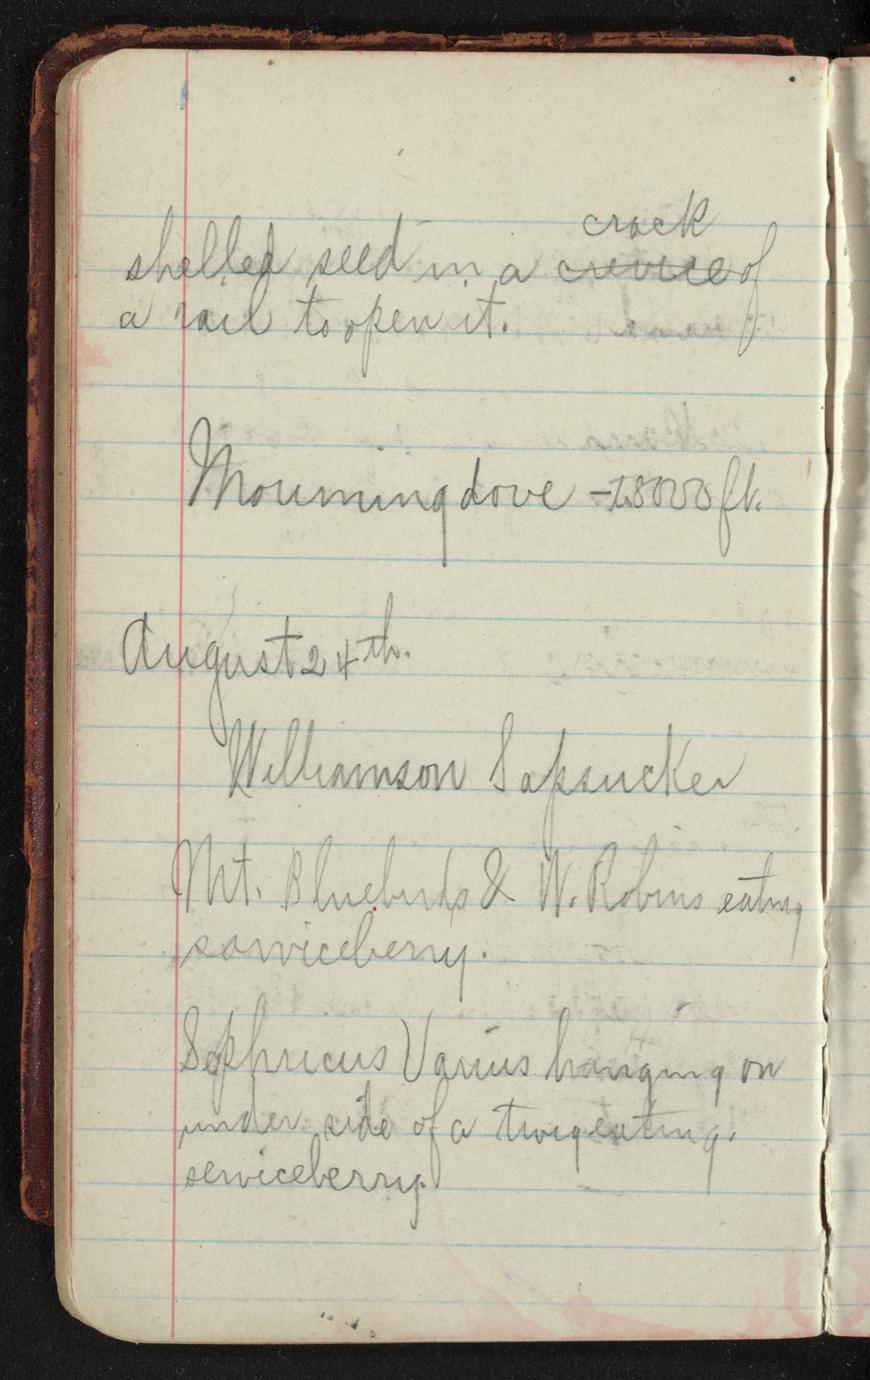 crack
shelled seed in a crevice of
a rail to open it.
Mourning dove - 8000 ft.
August 24th.
Williamson Sapsucker
Mt. Bluebirds & W. Robins eating
sarviceberry.
Sephricus Varius hanging on
under side of a twig eating
serviceberry.